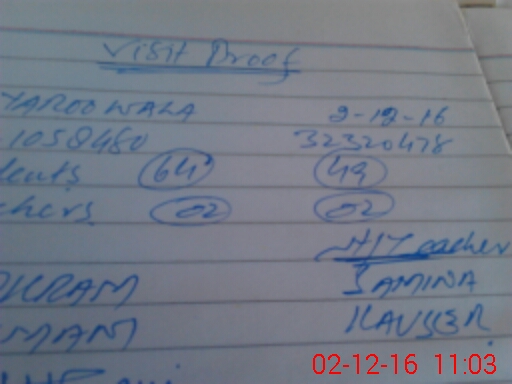 Visit Proof
YAROOWALA 2-12-16
1058480 32320478
dents 64 49
chers 02 02
H/Teacher
KRAM SAMINA
MAN KAUSER
02-12-16 11:03